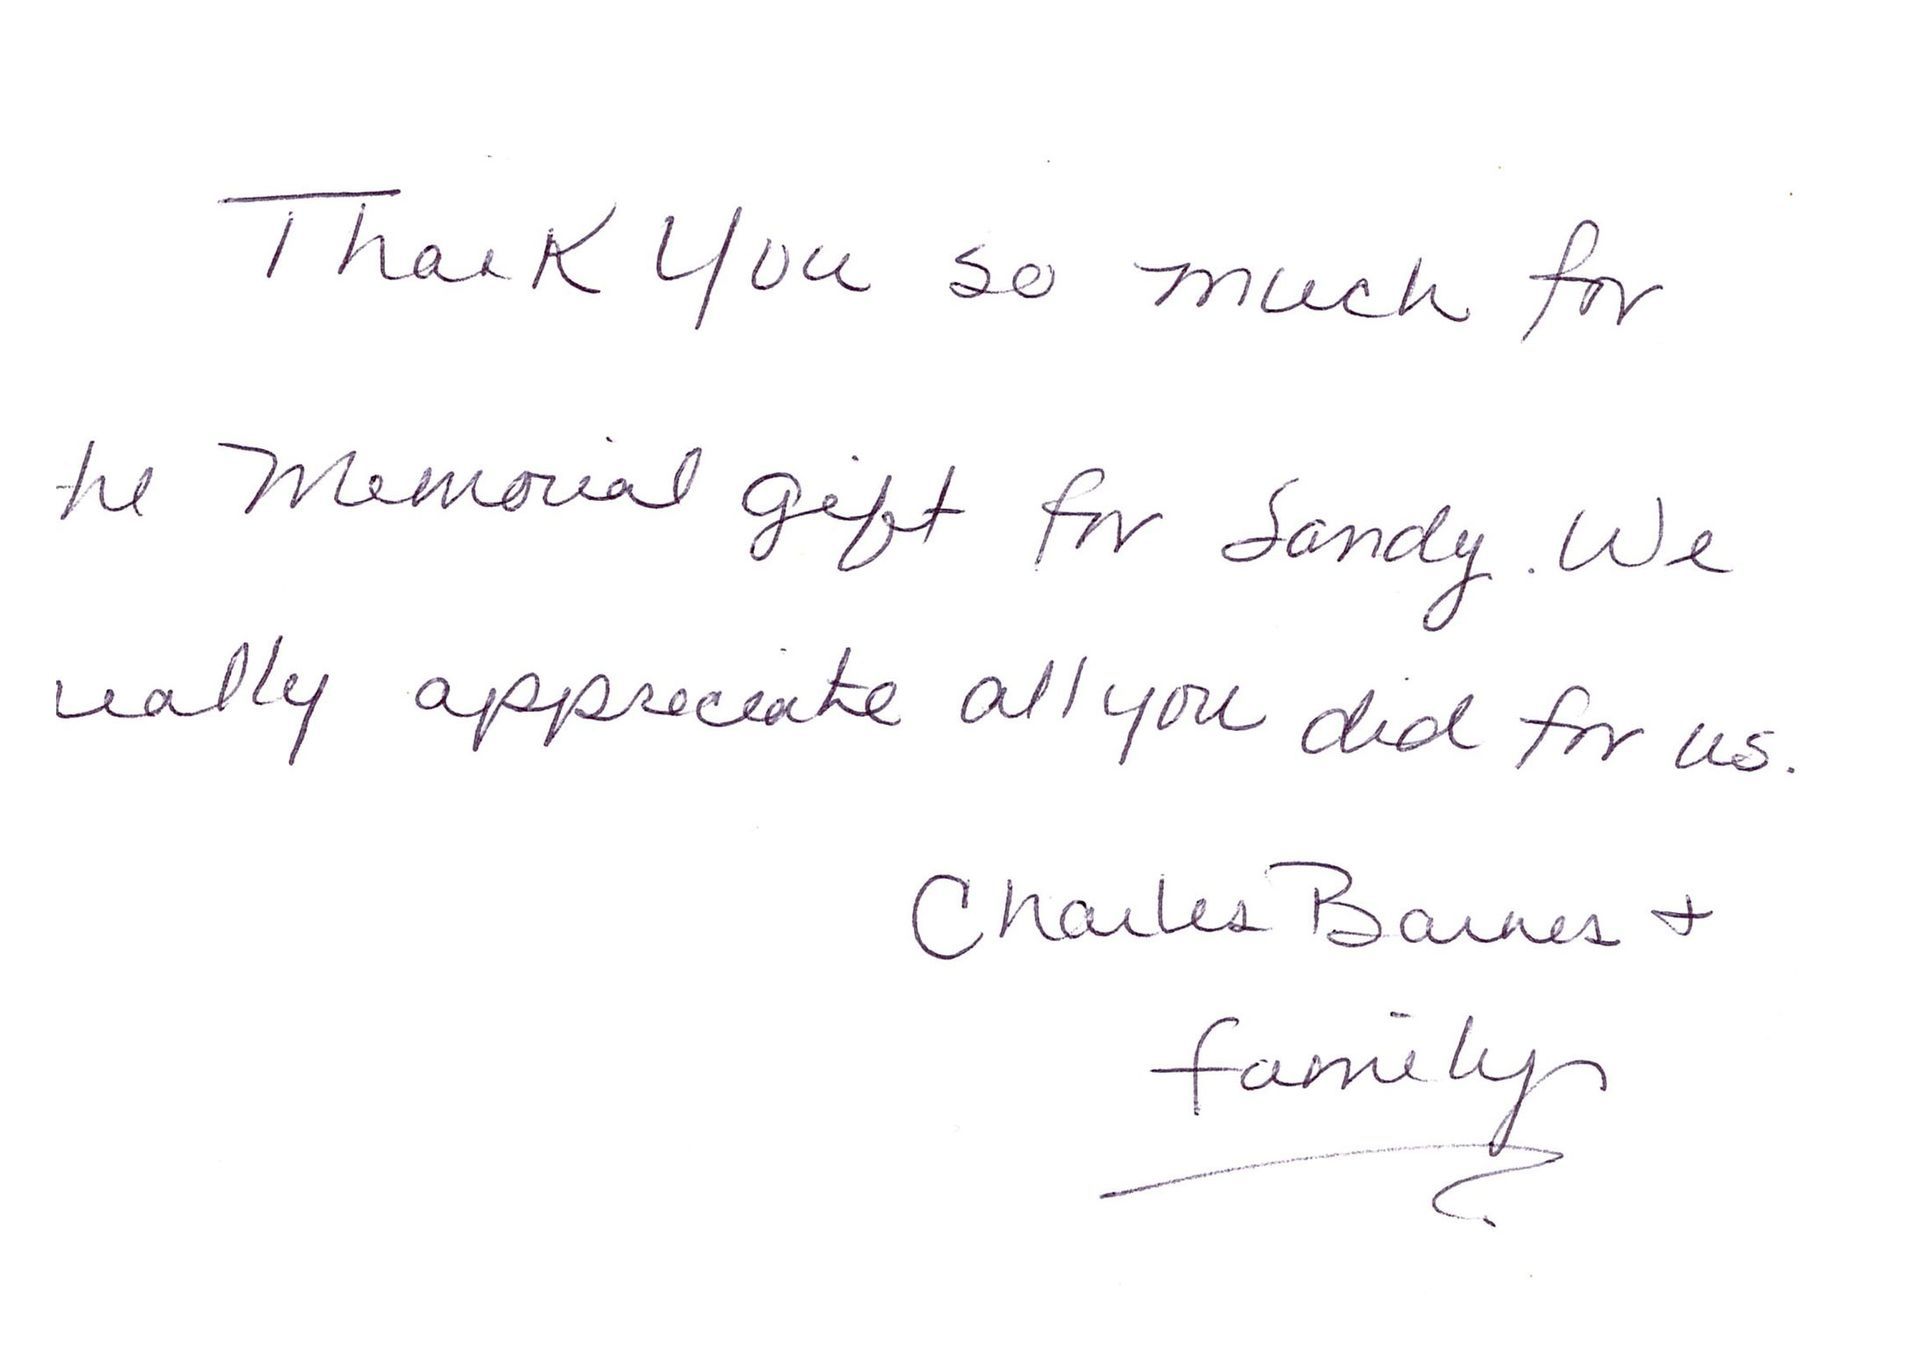 Thank You so much for
the Memorial gift for Sandy. We
really appreciate all you did for us.
Charles Barnes +
family